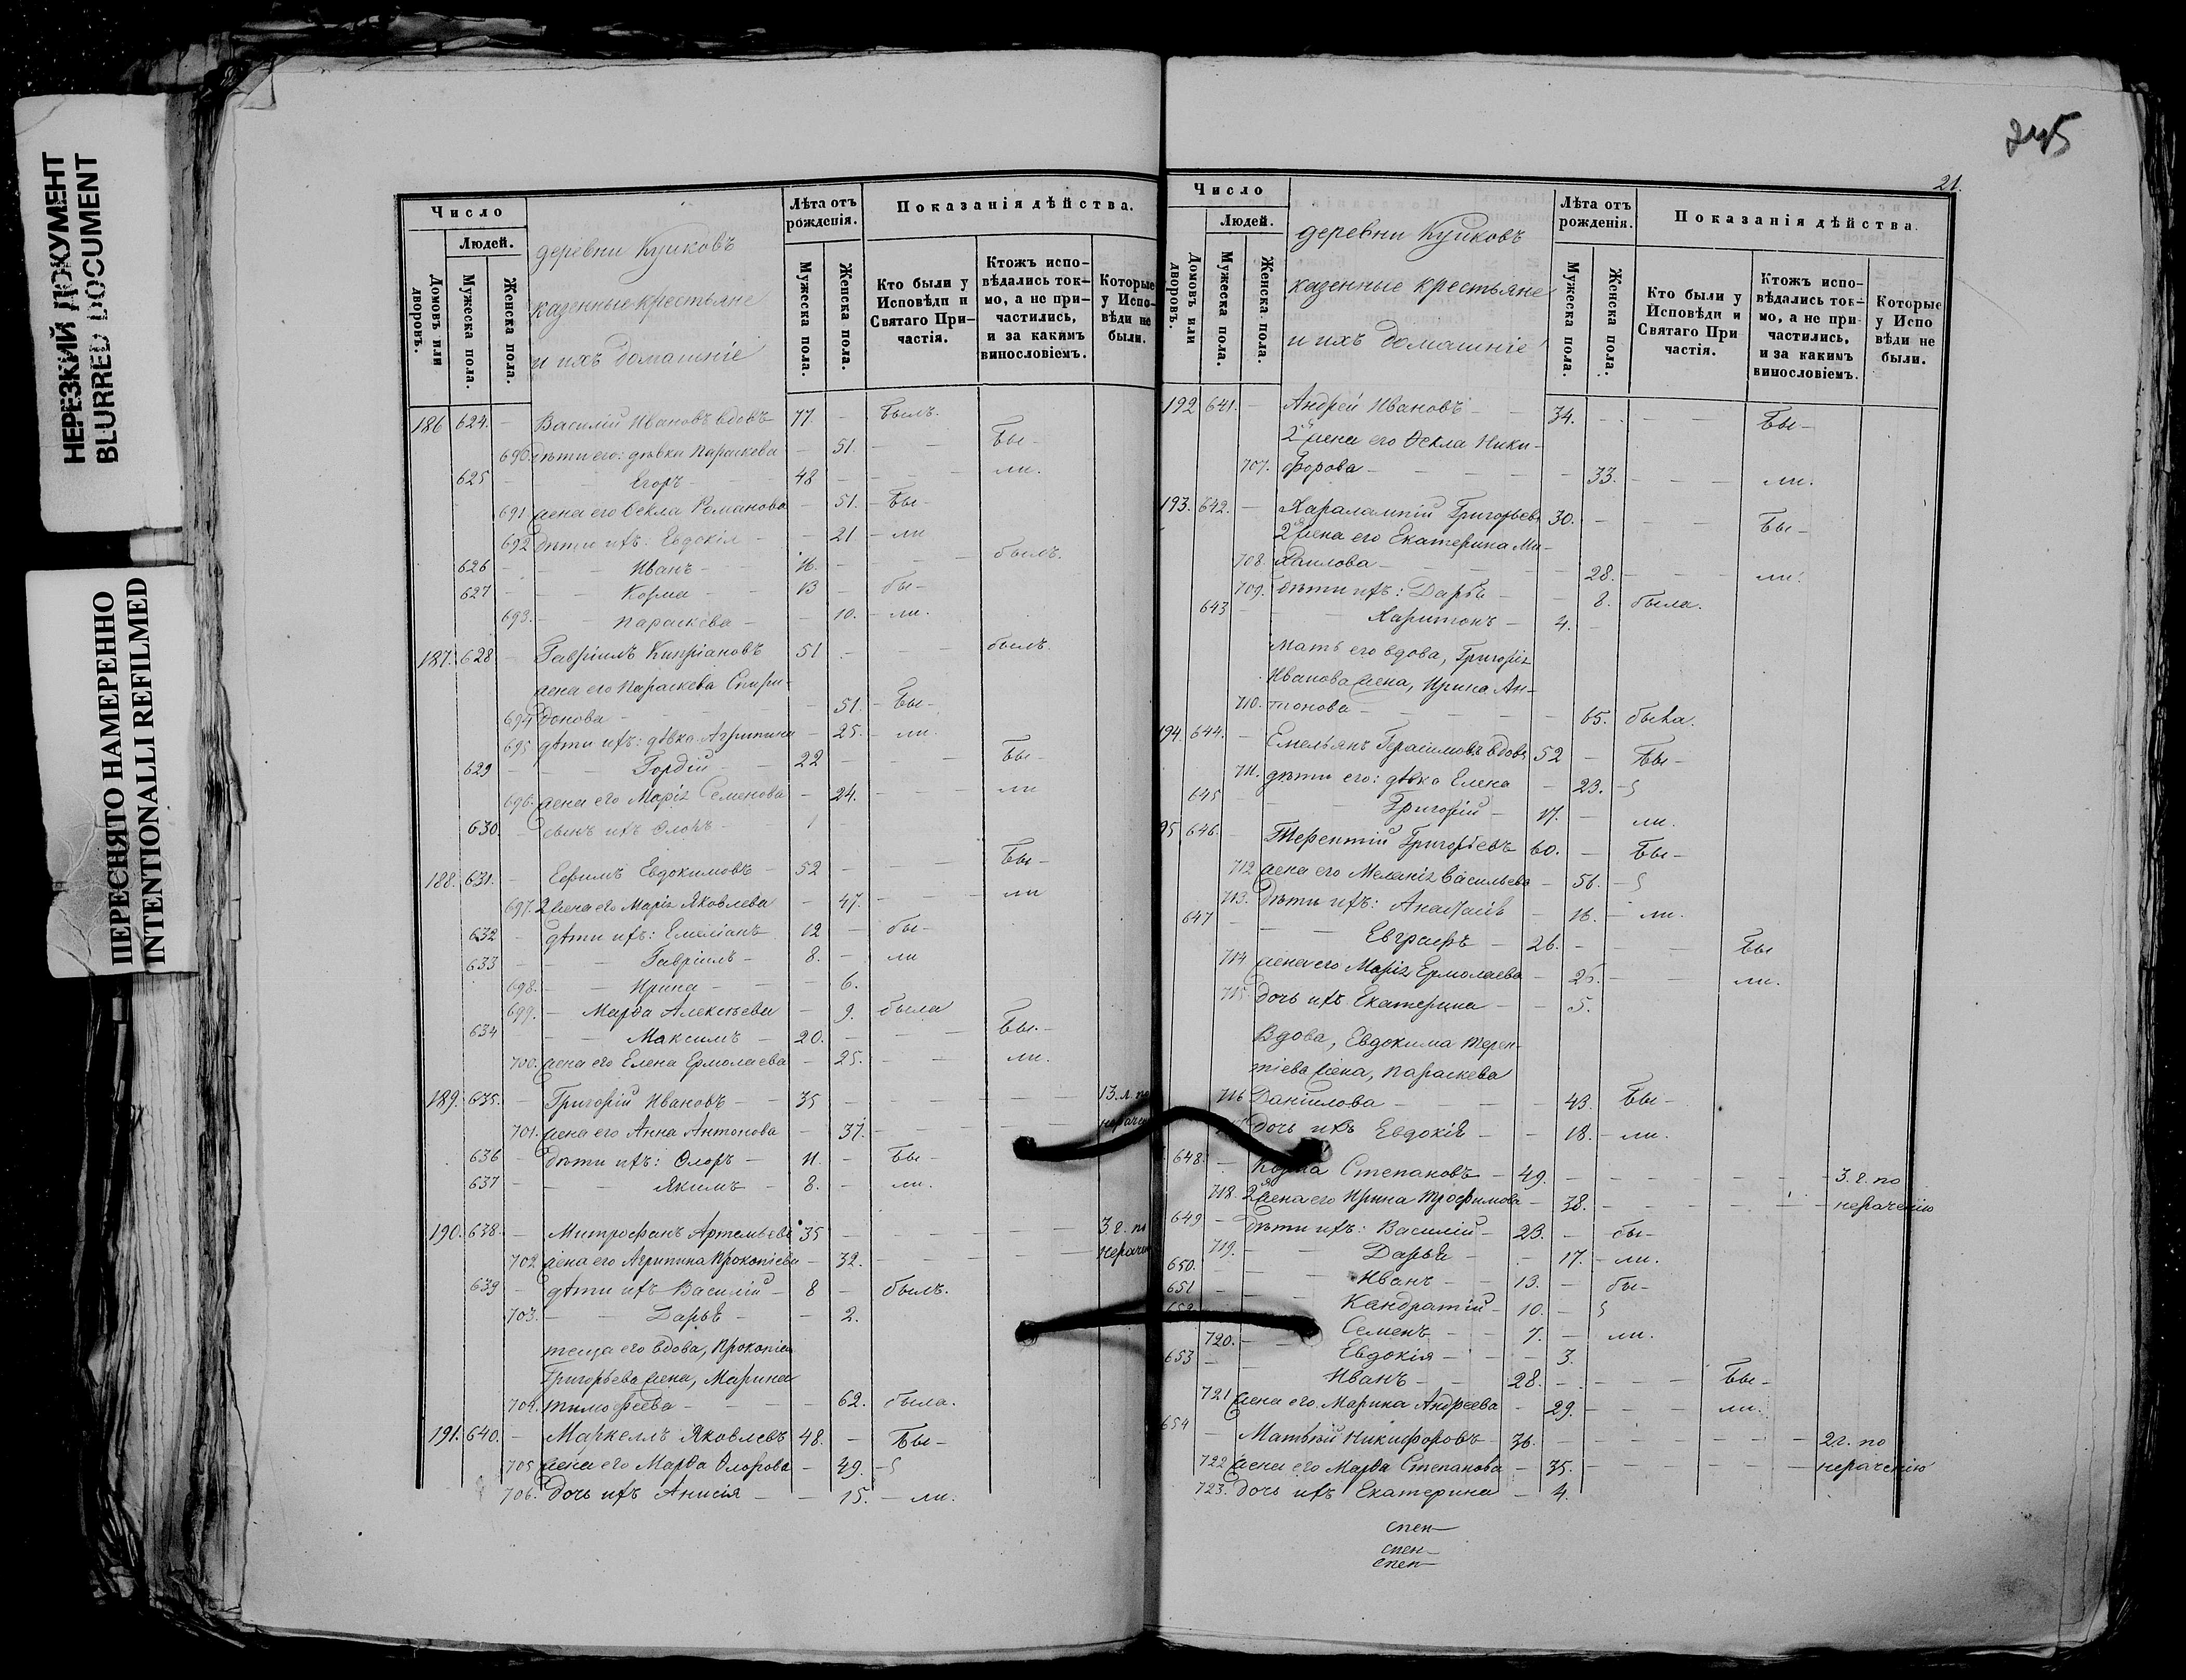 НЕРЕЗКИЙ ДОКУМЕНТ
BLURRED DOCUMENT
ПЕРЕСНЯТО НАМЕРЕННО
INTENTIONALLI REFILMED
Число
Людей.
Домовъ или дворовъ.
Мужеска пола.
Женска пола.
деревни Куйковъ
казенные крестьяне
и ихъ домашніе
Лѣта отъ рожденія.
Мужеска пола.
Женска пола.
Показанія дѣйства.
Кто были у Исповѣди и Святаго При-частія.
Ктожъ испо-вѣдались ток-мо, а не при-частились, и за какимъ винословіемъ.
Которые у Испо-вѣди не были.
186 624. - Василій Ивановъ вдовъ 77 - былъ.
690. дѣти его: дѣвка Параскева - 51. - - Бы-
625 - - Егоръ - 48 - - - ли.
691 жена его Ѳекла Романова - 51. - Бы-
692 дѣти ихъ: Евдокія - - 21 - ли
626 - - - Иванъ - 16. - - - былъ.
627 - - - Козма - - 13 - бы-
693. - - Параскева - - 10. - ли.
187. 628 - Гавріилъ Кипріановъ 51 - - - былъ.
жена его Параскева Спири-
694 донова - - - - 51. - Бы-
695 дѣти ихъ: дѣвка Агрипина - 25. - ли.
629 - - - Гордій - - 22 - - - Бы-
696. жена его Марія Семенова - 24. - - - ли
630 - сынъ ихъ Флоръ - 1
188. 631. - Ефимъ Евдокимовъ - 52 - - - Бы-
697. 2 жена его Марія Яковлева - 47. - - - ли
632 - дѣти ихъ: Емеліанъ 12 - бы-
633 - - - Гавріилъ - 8. - ли
698. - - Ирина - - - 6.
699. - Марѳа Алексѣева - 9. была
634 - - Максимъ - 20. - - - Бы.-
700. жена его Елена Ермолаева - 25. - - ли.
189. 635. - Григорій Ивановъ - - 35 - - - - 13.л. по
701. жена его Анна Антонова - 37. - - - - нераче
636 - дѣти ихъ: Флоръ - 11. - Бы-
637 - - - Якимъ - 8. - ли.
190. 638. - Митрофанъ Артемьевъ 35 - - - - 3.г. по
702 жена его Агрипина Прокопіева - 32. - - - - нераче
639 - дѣти ихъ Василій - 8 - былъ.
703. - - Дарья - - 2.
теща его вдова, Прокопія
Григорьева жена, Марина
704. тимофѣева - - - - 62. была.
191. 640. - Маркеллъ Яковлевъ 48. - Бы-
705 жена его Марѳа Флорова - 49. -
706. дочь ихъ Анисія - - 15. - ли.
745
21.
Число
Людей.
Домовъ или дворовъ.
Мужеска пола.
Женска пола.
деревни Куйковъ
казенные крестьяне
и ихъ домашніе
Лѣта отъ рожденія.
Мужеска пола.
Женска пола.
Показанія дѣйства.
Кто были у Исповѣди и Святаго При частія.
Ктожъ испо-вѣдались ток-мо, а не при-частились, и за какимъ винословіемъ.
Которые у Испо вѣди не были.
192 641. - Андрей Ивановъ - - 34. - - Бы-
2я жена его Ѳекла Ники-
707. форова - - - - - 33. - - - ли.
193. 642. - Харалампій Григорьевъ 30. - - - Бы-
2я жена его Екатерина Ми-
708. хаилова - - - - 28. - - - ли.
709. дѣти ихъ: Дарья - - 8. была.
643 - Харитонъ - 4. -
Мать его вдова, Григорія
Иванова жена, Ирина Ан-
710. тонова - - - - - 65. была.
194. 644. - Емельянъ Герасимовъ вдовъ 52 - Бы-
711. дѣти его: дѣвка Елена - 23. -
645 - - Григорій - 17. - ли.
95 646. - Терентій Григорьевъ 60. - Бы-
712 жена его Меланія Васильева - 56. -
713. дѣти ихъ: Анастасія - 16. - ли.
647 - - - Евграфъ - 26. - - - Бы
714 жена его Марія Ермолаева - 25. - - ли.
715 дочь ихъ Екатерина - - 5.
Вдова, Евдокима Терен-
тіева жена, Параскева
716 Даніилова - - - - 43. Бы-
дочь ихъ Евдокія - - 18. - ли.
648 - Козма Степановъ - 49. - - - - 3.г. по
718. 2я жена его Ирина Трофимова - 38. - - - - нераченію
649 - дѣти ихъ: Василій - 23. - бы-
719. - - Дарья - - 17. - ли.
650. - - - Иванъ - - 13. - бы-
651 - - Кандратій - 10. -
652 Семенъ - - 7. - ли.
720. - Евдокія - - - 3.
653 - - Иванъ - - 28. - - - Бы-
721 жена его Марина Андреева - 29. - - - ли.
654 Матвѣй Никифоровъ - 36. - - - - 2г. по
722 жена его Марѳа Степанова - 35. - - - - нераченію
723. дочь ихъ Екатерина - 4.